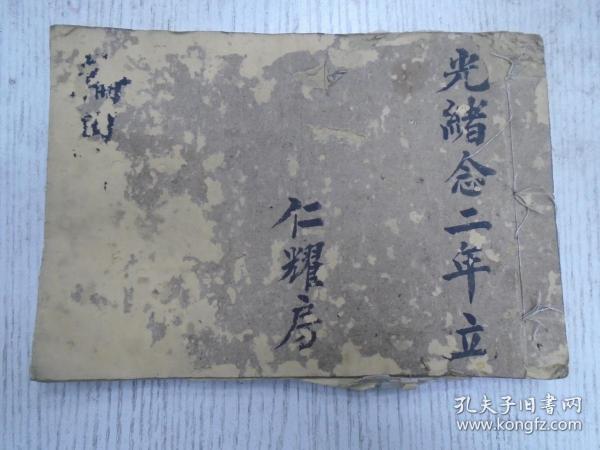 光緒念二年立
仁耀房
孔夫子旧书网
www.kongfz.com